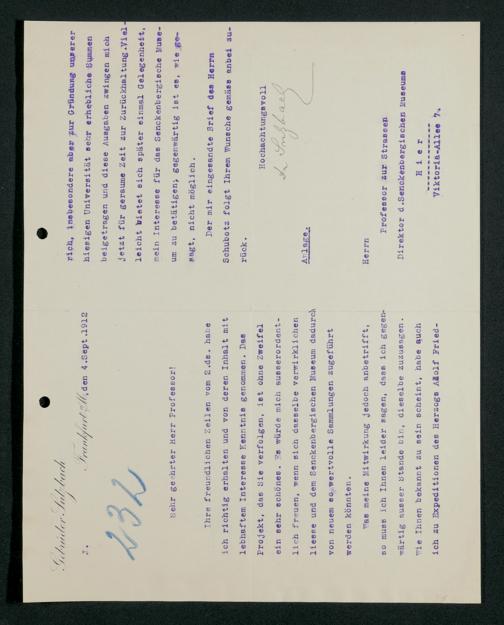 Gebrüder Sulzbach
Frankfurt a/M, den 4.Sept.1912
J.
232
Sehr geehrter Herr Professor!
Ihre freundlichen Zeilen vom 2.ds. habe
ich richtig erhalten und von deren Inhalt mit
lebhaftem Interesse Kenntnis genommen. Das
Projekt, das Sie verfolgen, ist ohne Zweifel
ein sehr schönes. Es würde mich ausserordent-
lich freuen, wenn sich dasselbe verwirklichen
liesse und dem Senckenbergischen Museum dadurch
von neuem so wertvolle Sammlungen zugeführt
werden könnten.
Was meine Mitwirkung jedoch anbetrifft,
so muss ich Ihnen leider sagen, dass ich gegen-
wärtig ausser Stande bin, dieselbe zuzusagen.
Wie Ihnen bekannt zu sein scheint, habe auch
ich zu Expeditionen des Herzogs Adolf Fried-
rich, insbesondere aber zur Gründung unserer
hiesigen Universität sehr erhebliche Summen
beigetragen und diese Ausgaben zwingen mich
jetzt für geraume Zeit zur Zurückhaltung.Viel-
leicht bietet sich später einmal Gelegenheit,
mein Interesse für das Senckenbergische Muse-
um zu betätigen; gegenwärtig ist es, wie ge-
sagt, nicht möglich.
Der mir eingesandte Brief des Herrn
Schubotz folgt Ihrem Wunsche gemäss anbei zu-
rück.
Hochachtungsvoll
Sulzbach
Anlage.
Herrn
Professor zur Strassen
Direktor d.Senckenbergischen Museums
Hier
Viktoria-Allee 7.